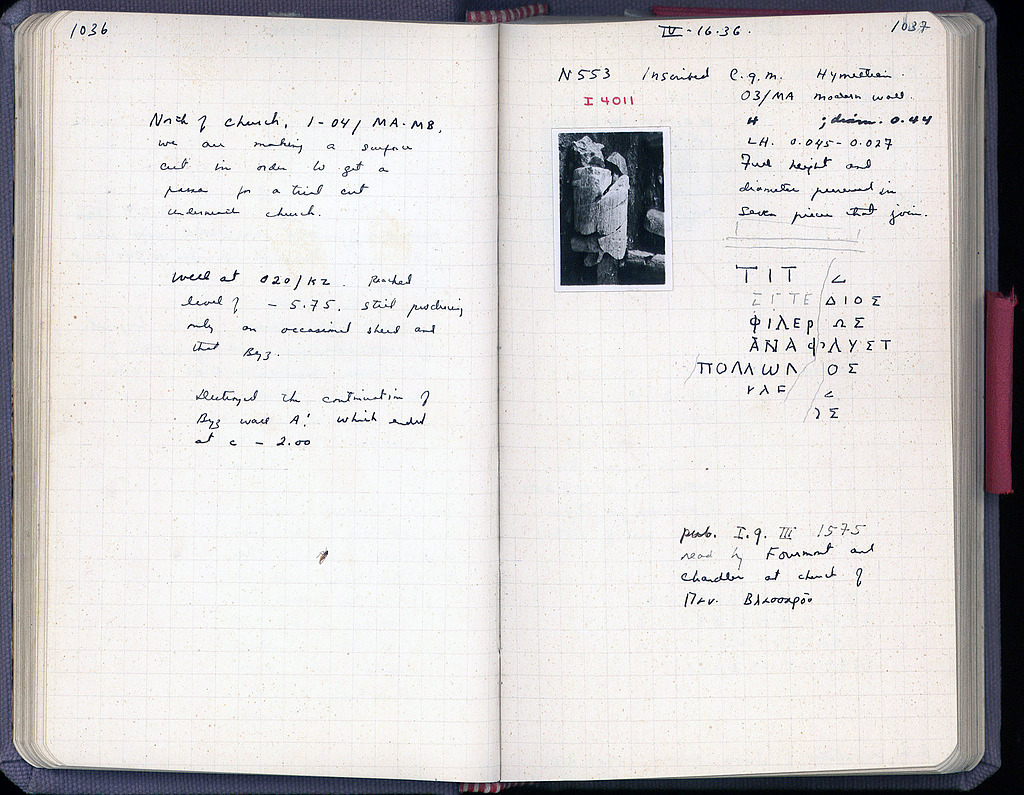 1036
North of church, 1-04/MA-MB,
we are making a surface
cut in order to get a
passa for a trial cut
underneath church.
Well at O20/KZ. Reached
level of - 5.75. still producing
only an occasional sherd and
that Byz.
Destroyed the continuation of
Byz wall A! which ended
at c - 2.00
IV-16-36.
1037
N553 Inscribed C.g.m. Hymettian.
I 4011
O3/MA modern wall.
H ; diam. 0.44
LH. 0.045-0.027
Full height and
diameter preserved in
seven pieces that join.
ΤΙΤ
ΔΙΟΣ
ΦΙΛΕΡ ΩΣ
ΑΝΑΦΛΥΣΤ
ΠΟΛΛΩΛ ΟΣ
ΥΛΕ
ΟΣ
prob. I.g. III 1575
read by Fourmont and
Chandler at church of
Παν.